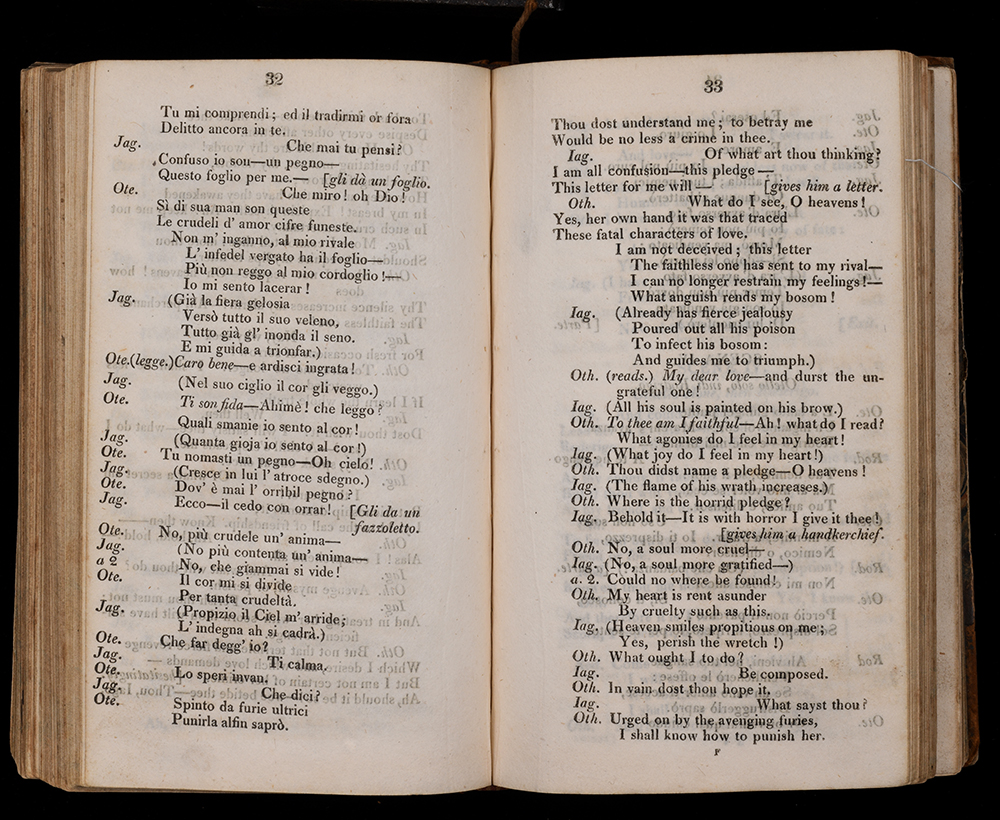 32
Tu mi comprendi; ed il tradirmi or fora
Delitto ancora in te.
Jag. Che mai tu pensi?
Confuso io son—un pegno—
Questo foglio per me.— [gli dà un foglio.
Ote. Che miro! oh Dio!
Sì di sua man son queste
Le crudeli d' amor cifre funeste.
Non m' inganno, al mio rivale
L' infedel vergato ha il foglio—
Più non reggo al mio cordoglio!—
Io mi sento lacerar!
Jag. (Già la fiera gelosia
Versò tutto il suo veleno,
Tutto già gl' inonda il seno.
E mi guida a trionfar.)
Ote.(legge.) Caro bene—e ardisci ingrata!
Jag. (Nel suo ciglio il cor gli veggo.)
Ote. Ti son fida—Ahimè! che leggo?
Quali smanie io sento al cor!
Jag. (Quanta gioja io sento al cor!)
Ote. Tu nomasti un pegno—Oh cielo!
Jag. (Cresce in lui l' atroce sdegno.)
Ote. Dov' è mai l' orribil pegno?
Jag. Ecco—il cedo con orrar! [Gli da un
fazzoletto.
Ote. No, più crudele un' anima—
Jag. (No più contenta un' anima—
a 2 No, che giammai si vide!
Ote. Il cor mi si divide
Per tanta crudeltà.
Jag. (Propizio il Ciel m' arride;
L' indegna ah si cadrà.)
Ote. Che far degg' io?
Jag. Ti calma.
Ote. Lo speri invan.
Jag. Che dici?
Ote. Spinto da furie ultrici
Punirla alfin saprò.
33
Thou dost understand me; to betray me
Would be no less a crime in thee.
Iag. Of what art thou thinking?
I am all confusion—this pledge—
This letter for me will— [gives him a letter.
Oth. What do I see, O heavens!
Yes, her own hand it was that traced
These fatal characters of love.
I am not deceived; this letter
The faithless one has sent to my rival—
I can no longer restrain my feelings!—
What anguish rends my bosom!
Iag. (Already has fierce jealousy
Poured out all his poison
To infect his bosom:
And guides me to triumph.)
Oth. (reads.) My dear love—and durst the un-
grateful one!
Iag. (All his soul is painted on his brow.)
Oth. To thee am I faithful—Ah! what do I read?
What agonies do I feel in my heart!
Iag. (What joy do I feel in my heart!)
Oth. Thou didst name a pledge—O heavens!
Iag. (The flame of his wrath increases.)
Oth. Where is the horrid pledge?
Iag. Behold it—It is with horror I give it thee!)
[gives him a handkerchief.
Oth. No, a soul more cruel—
Iag. (No, a soul more gratified—)
a. 2. Could no where be found!
Oth. My heart is rent asunder
By cruelty such as this.
Iag. (Heaven smiles propitious on me;
Yes, perish the wretch!)
Oth. What ought I to do?
Iag. Be composed.
Oth. In vain dost thou hope it.
Iag. What sayst thou?
Oth. Urged on by the avenging furies,
I shall know how to punish her.
F